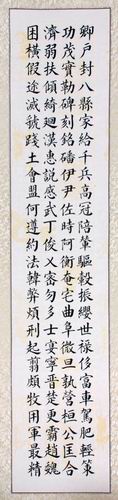 卿戶封八縣家給千兵高冠陪輦驅轂振纓世祿侈富車駕肥輕策
功茂實勒碑刻銘磻伊尹佐時阿衡奄宅曲阜微旦孰營桓公匡合
濟弱扶傾綺迴漢惠說感武丁俊乂密勿多士寔寧晉楚更霸趙魏
困橫假途滅虢踐土會盟何遵約法韓弊煩刑起翦頗牧用軍最精